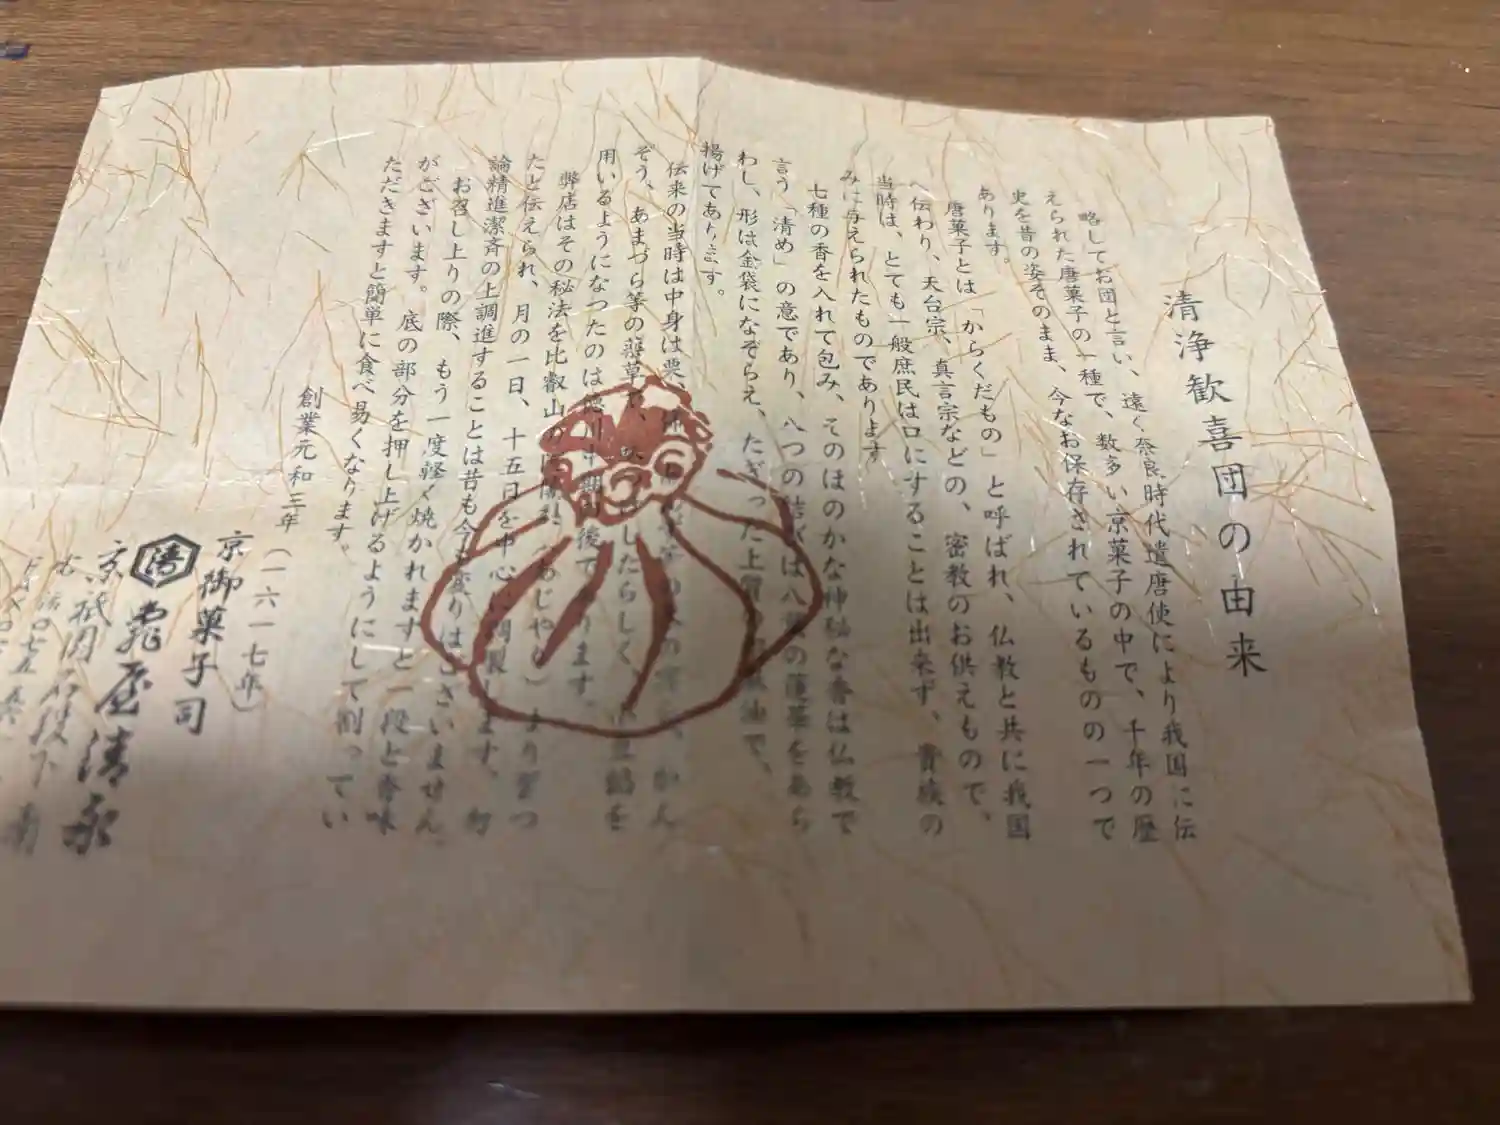 清浄歓喜団の由来
略してお団と言い、遠く奈良時代遣唐使により我国に伝
えられた唐菓子の一種で、数多い京菓子の中で、千年の歴
史を昔の姿そのまま、今なお保存されているものの一つで
あります。
唐菓子とは「からくだもの」と呼ばれ、仏教と共に我国
へ伝わり、天台宗、真言宗などの、密教のお供えもので、
当時は、とても一般庶民は口にすることは出来ず、貴族の
みに与えられたものであります
七種の香を入れて包み、そのほのかな神秘な香は仏教で
言う「清め」の意であり、八つの結びは八葉の蓮華をあら
わし、形は金袋になぞらえ、たぎった上質の胡麻油で、
揚げてあります。
伝来の当時は中身は栗、かん
ぞう、あまづら等の薬草で、したらしく、小豆餡を
用いるようになつたのは徳川中期以後であります。
弊店はその秘法を比叡山の阿闍梨（あじゃり）より習つ
たと伝えられ、月の一日、十五日を中心に調製します。勿
論精進潔斉の上調進することは昔も今も変りはございません。
お召し上りの際、もう一度軽く焼かれますと一段と香味
がございます。底の部分を押し上げるようにして割ってい
ただきますと簡単に食べ易くなります。
創業元和三年
（一六一七年）
京御菓子司
清 亀屋清永
京・祇園石段下 南